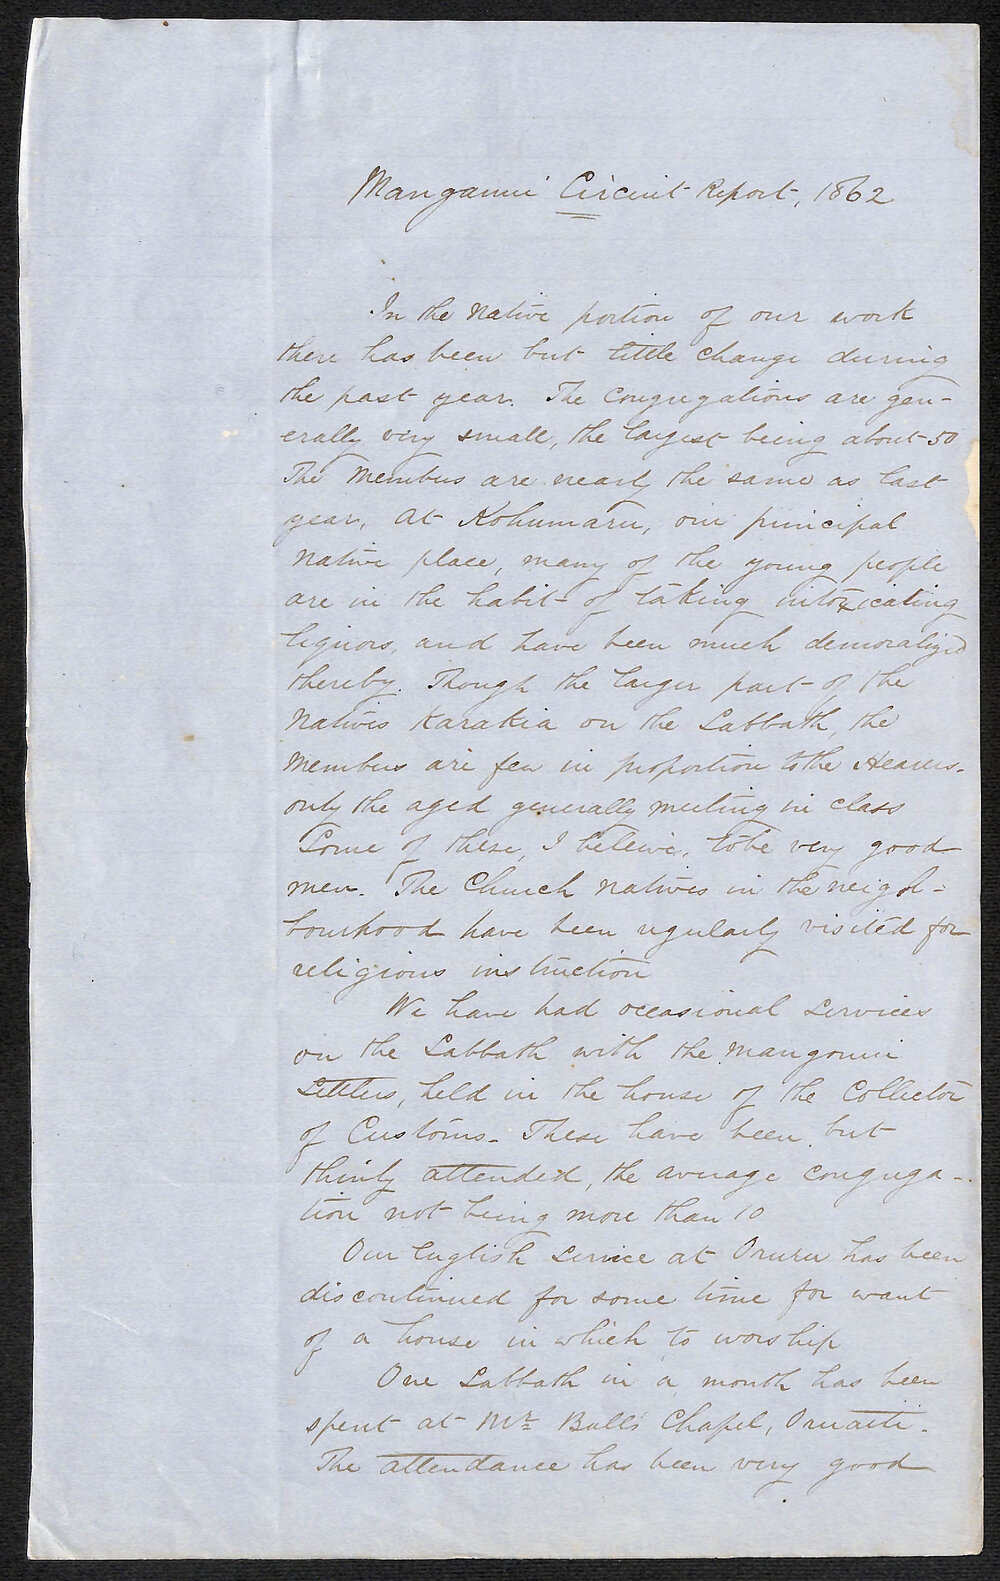 Mangonui Circuit Report, 1862
In the Native portion of our work
there has been but little change during
the past year. The Congregations are gen-
erally very small, the largest being about 50
The Members are nearly the same as last
year, At Kohumaru, our principal
Native place, many of the young people
are in the habit of taking intoxicating
liquors, and have been much demoralized
thereby. Though the larger part of the
Natives Karakia on the Sabbath, the
Members are few in proportion to the Hearers.
only the aged generally meeting in class
Some of these, I beleive, to be very good
men. The Church Natives in the neigh-
bourhood have been regularly visited for
religious instruction
We have had occasional services
on the Sabbath with the Mangonui
Settlers, held in the house of the Collector
of Customs. These have been but
thinly attended, the average congrega-
tion not being more than 10
Our English Service at Oruru has been
discontinued for some time for want
of a house in which to worship
One Sabbath in a month has been
spent at Mr Ball's Chapel, Oruaiti.
The attendance has been very good